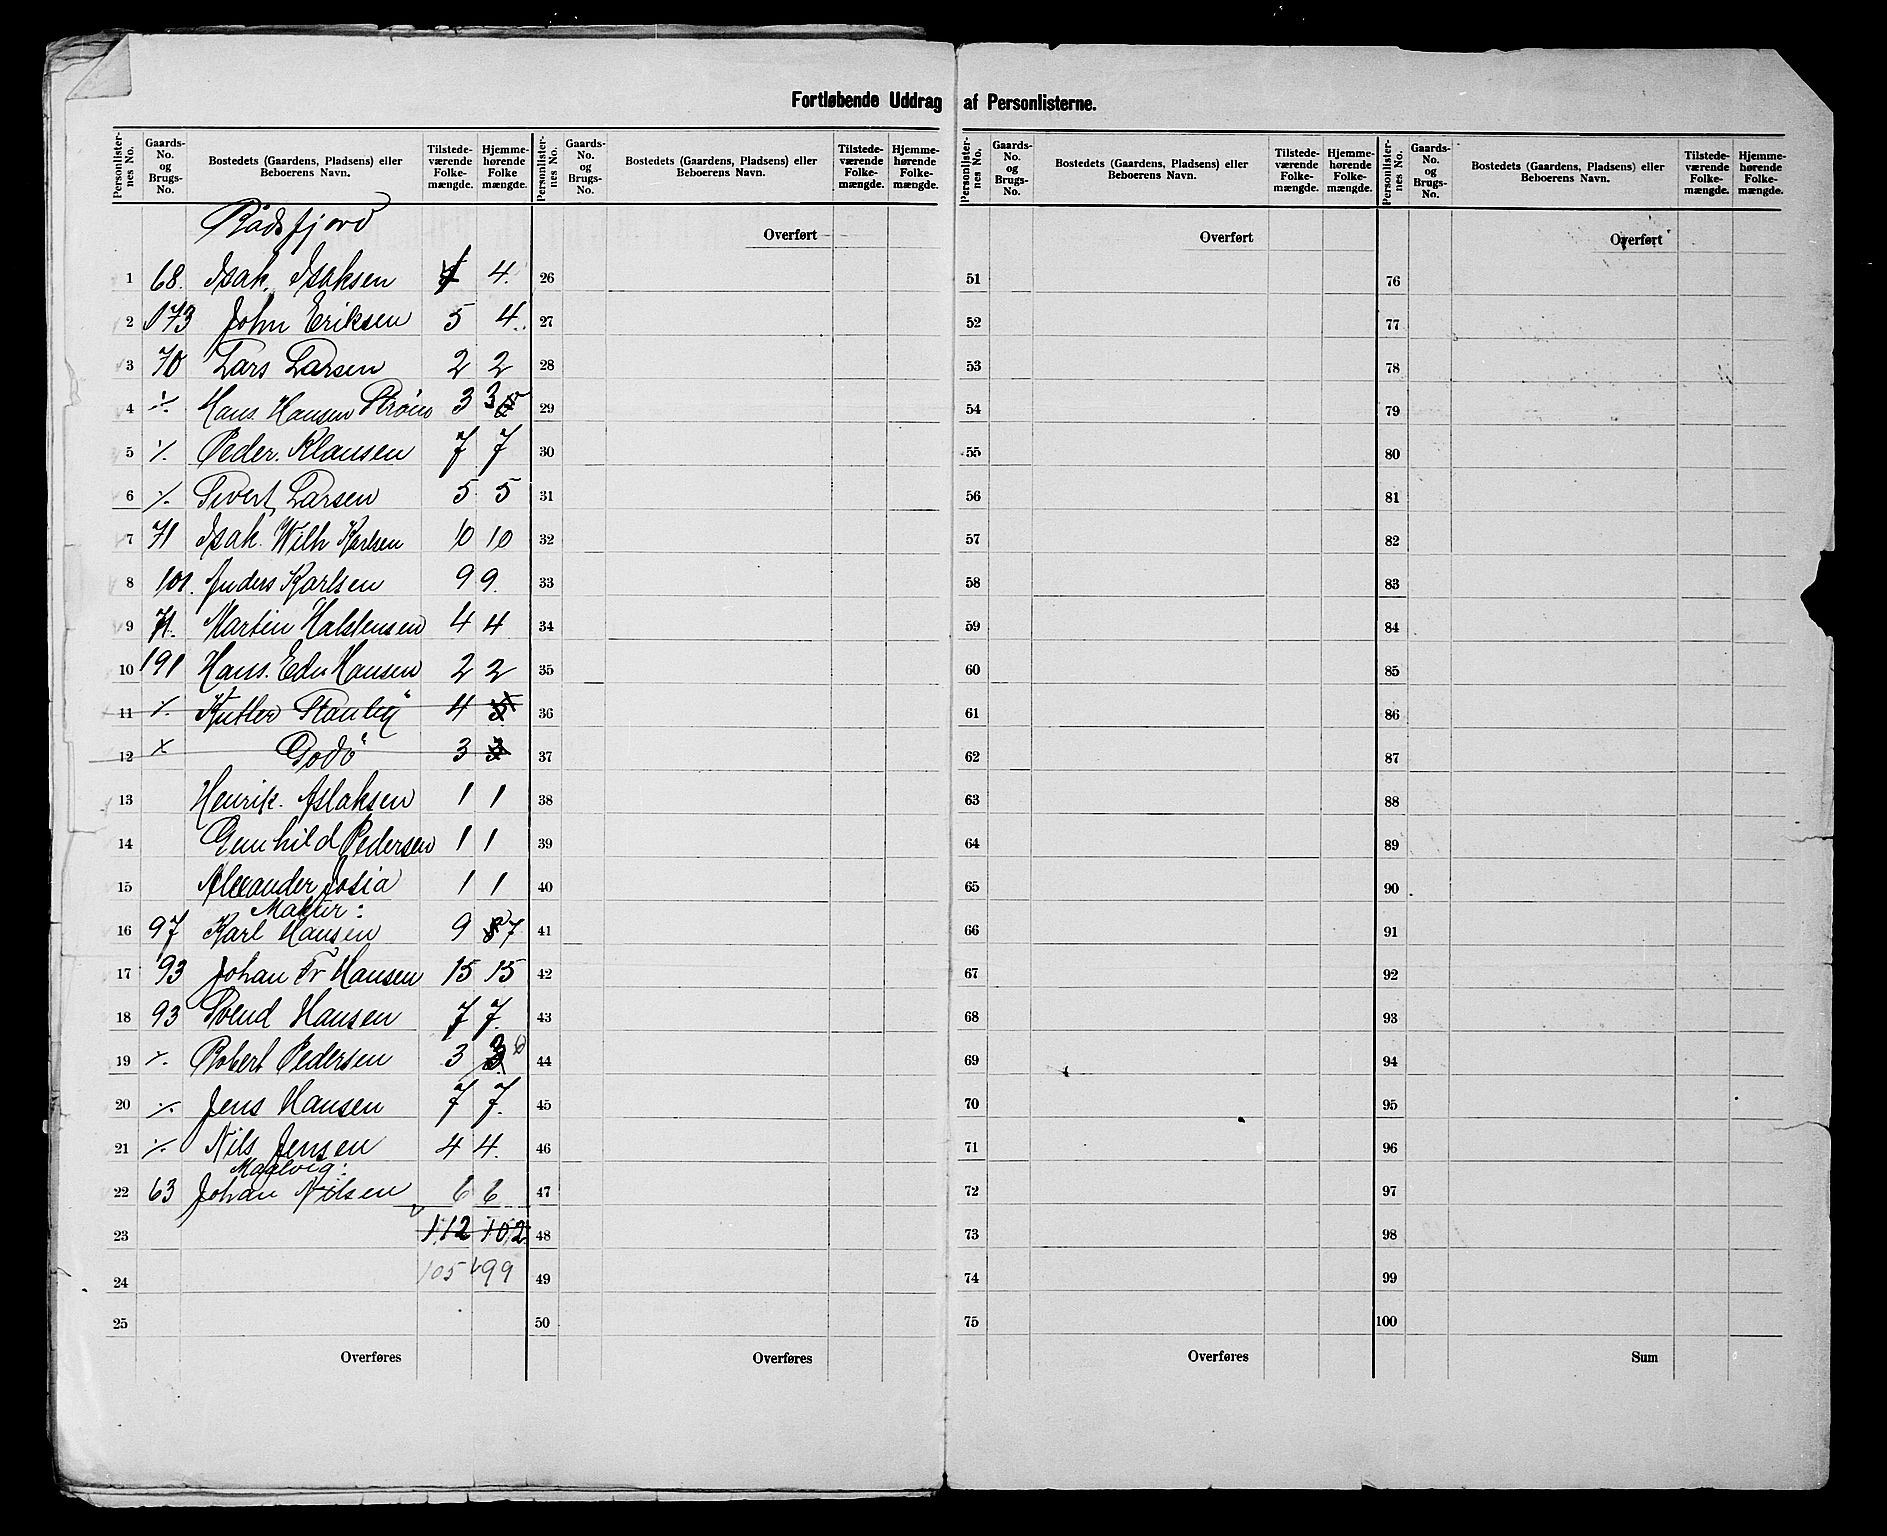 Fortløbende Uddrag af Personlisterne.
Personlister-nes No. Gaards-No. og Brugs-No. Bostedets (Gaardens, Pladsens) eller Beboerens Navn. Tilstede-værende Folke-mængde. Hjemme-hørende Folke mængde.
Personlister-nes No. Gaards-No. og Brugs-No. Bostedets (Gaardens, Pladsens) eller Beboerens Navn. Tilstede-værende Folke-mængde. Hjemme-hørende Folke-mængde.
Personlister-nes No. Gaards-No. og Brugs-No. Bostedets (Gaardens, Pladsens) eller Beboerens Navn. Tilstede-værende Folke-mængde. Hjemme-hørende Folke-mængde.
Personlister-nes No. Gaards-No. og Brugs-No. Bostedets (Gaardens, Pladsens) eller Beboerens Navn. Tilstede-værende Folke-mængde. Hjemme-hørende Folke-mængde.
Rådsfjord Overført Overført Overført
1 68. Isak. Isaksen 4. 26 51 76
2 173 John Eriksen 5 4. 27 52 77
3 70 Lars Larsen 2 2 28 53 78
4 ٪ Hans Hansen Strøm 3 3 29 54 79
5 ٪ Peder. Klausen 7 7 30 55 80
6 ٪ Sivert Larsen 5 5 31 56 81
7 71 Isak. Wilh Karlsen 10 10 32 57 82
8 101. Anders Karlsen 9 9. 33 58 83
9 71. Martin Halstensen 4 4 34 59 84
10 191 Hans. Edv Hansen 2 2 35 60 85
11 ٪ Kutter Stanley 4 5 36 61 86
12 × Godø 3 3 37 62 87
13 Henrik. Aslaksen 1 1 38 63 88
14 Gunhild Pedersen 1 1 39 64 89
15 Alexander Josia 1 1 40 65 90
Makur:
16 97 Karl Hansen 9 8 7 41 66 91
17 93 Johan Fr Hansen 15 15 42 67 92
18 93 Svend Hansen 7 7. 43 68 93
19 ٪ Robert Pedersen 3 3 6 44 69 94
20 ٪ Jens Hansen 7 7. 45 70 95
21 ٪ Nils Jensen 4 4. 46 71 96
Maalvig:
22 63 Johan Nilsen 6 6 47 72 97
23 112 102 48 73 98
24 105 99 49 74 99
25 50 75 100
Overføres Overføres Overføres Sum